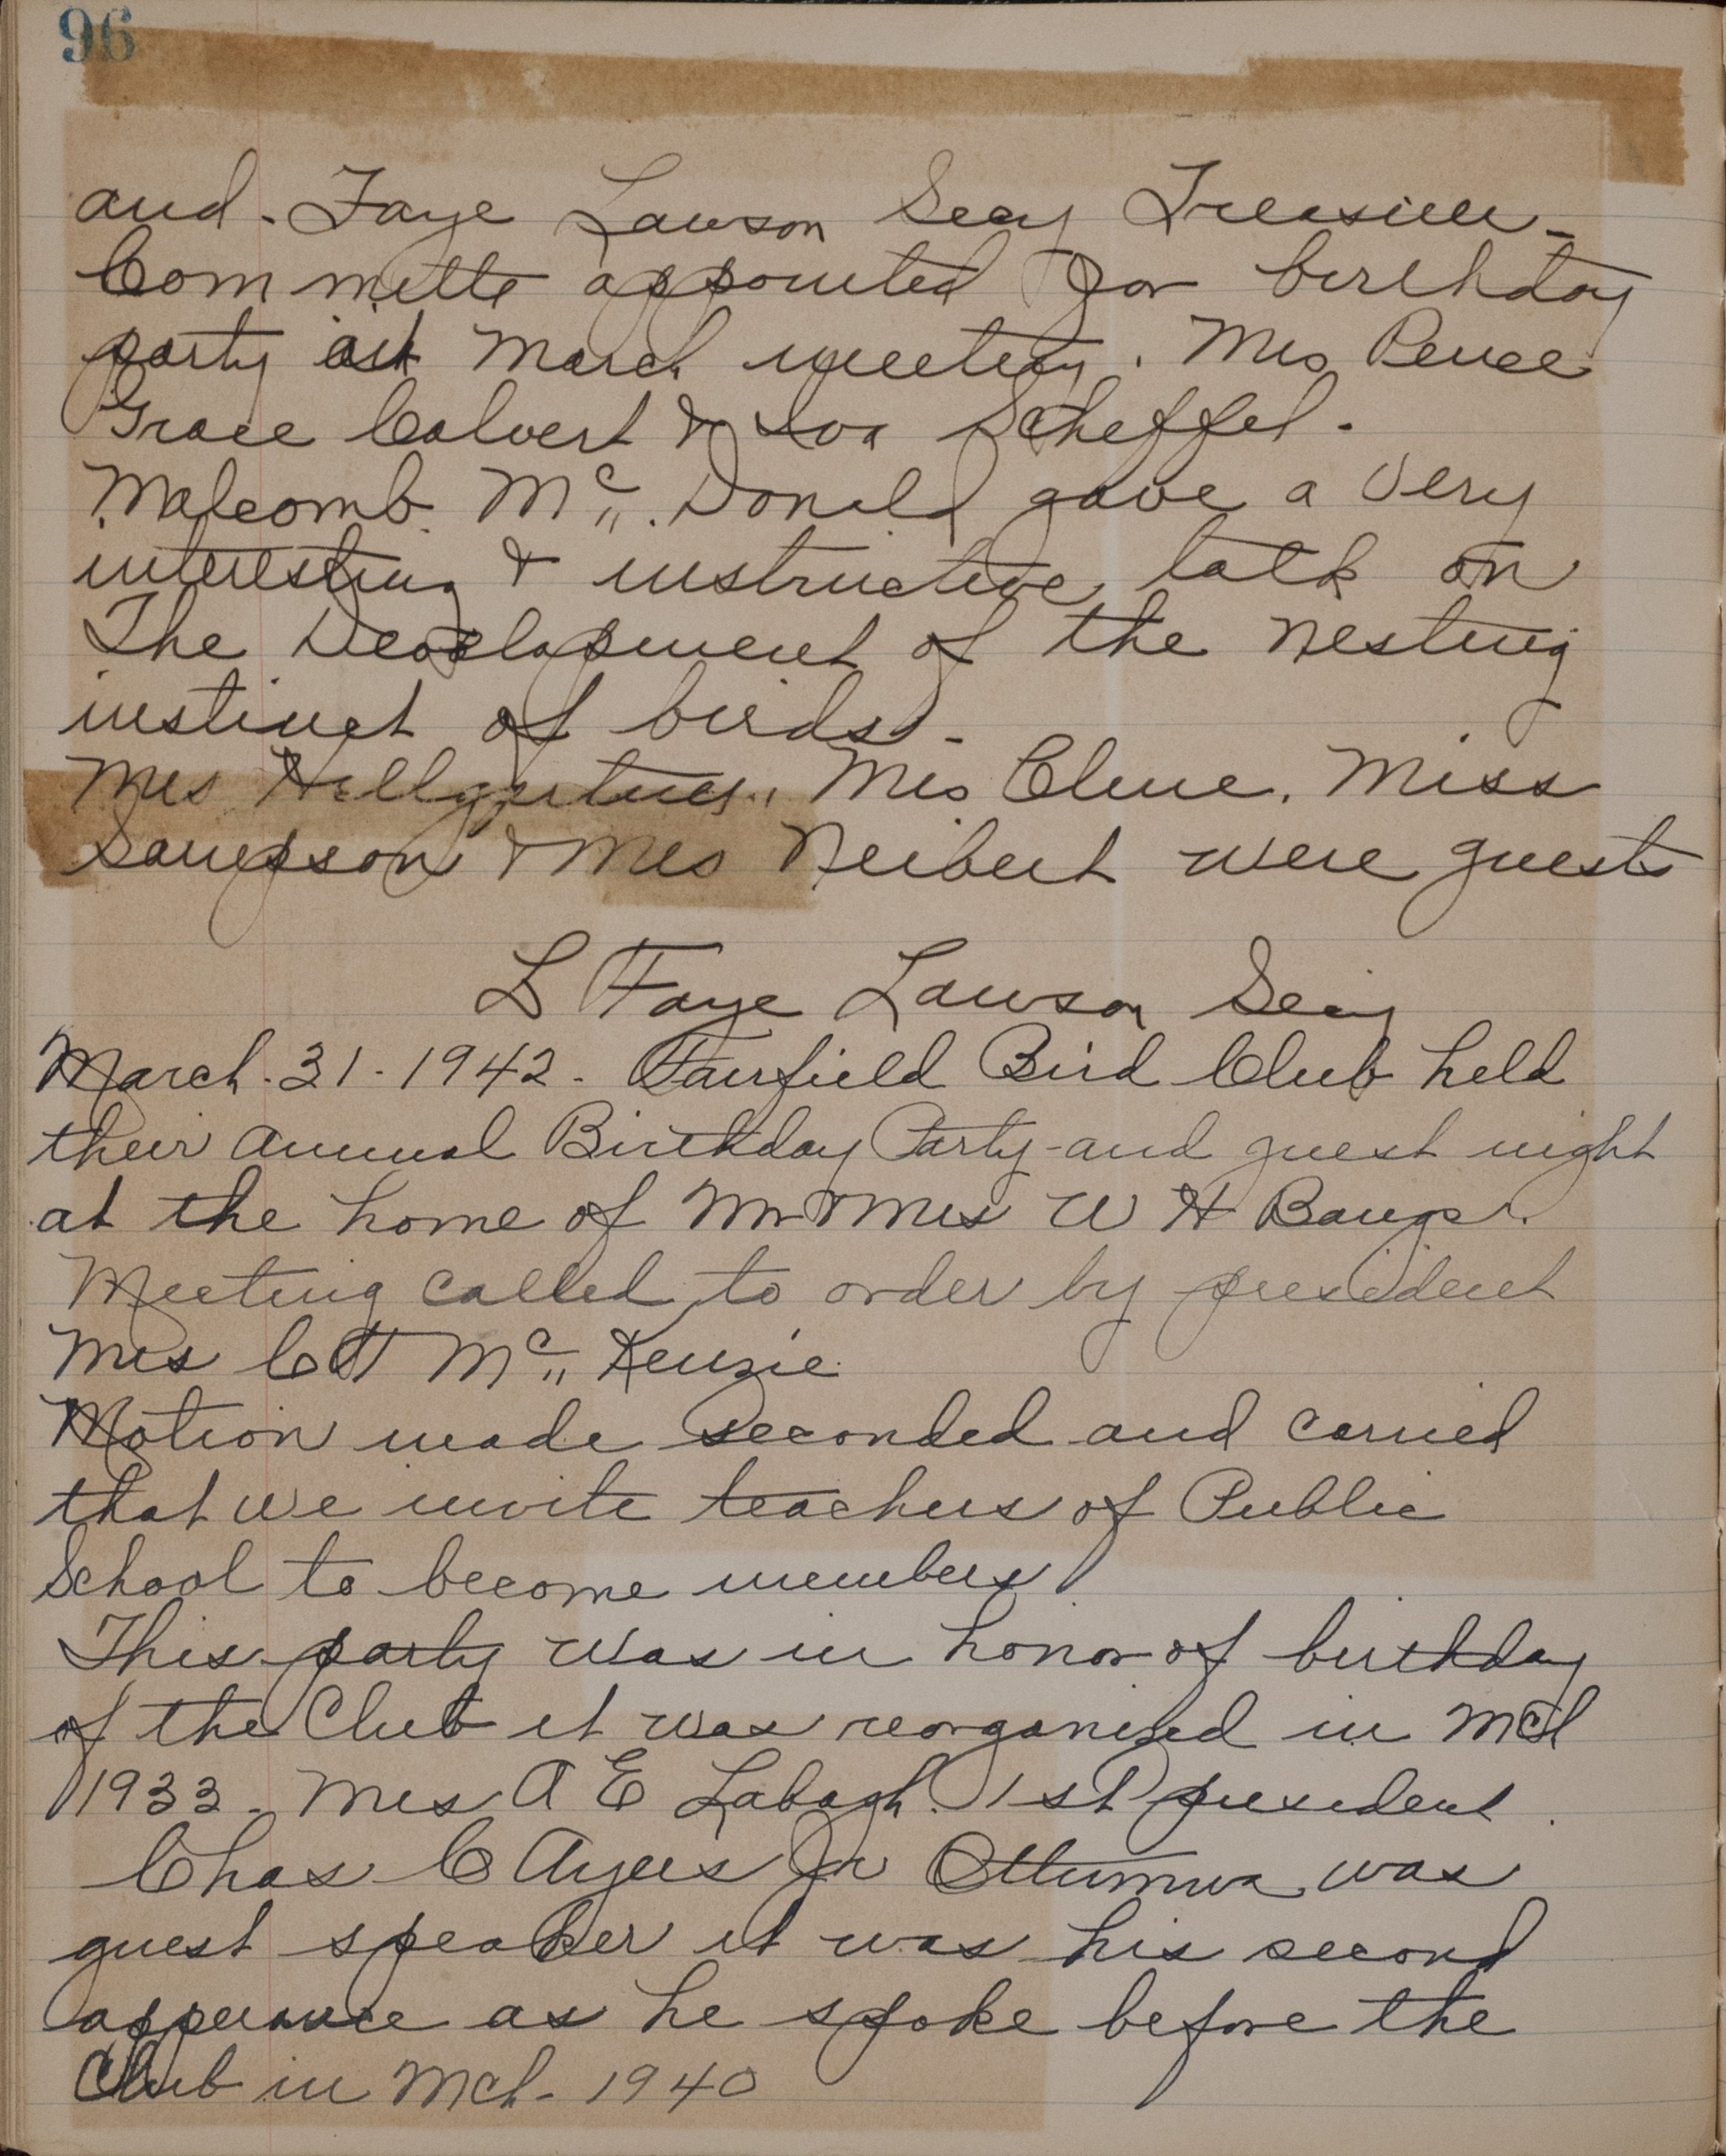 96
and - Faye Lawson Secy Treasurer -
Committe appointed for birthday
party at March meeting. Mrs Pence
Grace Calvert & Iva Scheffel.
Malcomb Mc Donald gave a very
interesting & instructive talk on
The Development of the nesting
instinct of birds -
Mrs Hellgartner, Mrs Clure, Miss
Sampson & Mrs Neibert were guests
L Faye Lawson Secy
March - 31 - 1942 - Fairfield Bird Club held
their annual Birthday Party - and guest night
at the home of Mr & Mrs W H Bangs.
Meeting called to order by president
Mrs C H Mc Kenzie
Motion made seconded and carried
that we invite teachers of Public
School to become members
This party was in honor of birthday
of the Club it was reorganized in Mch
1933 - Mrs A E Labagh. 1st president.
Chas C Ayers Jr Ottumwa was
guest speaker it was his second
apperance as he spoke before the
Club in Mch - 1940